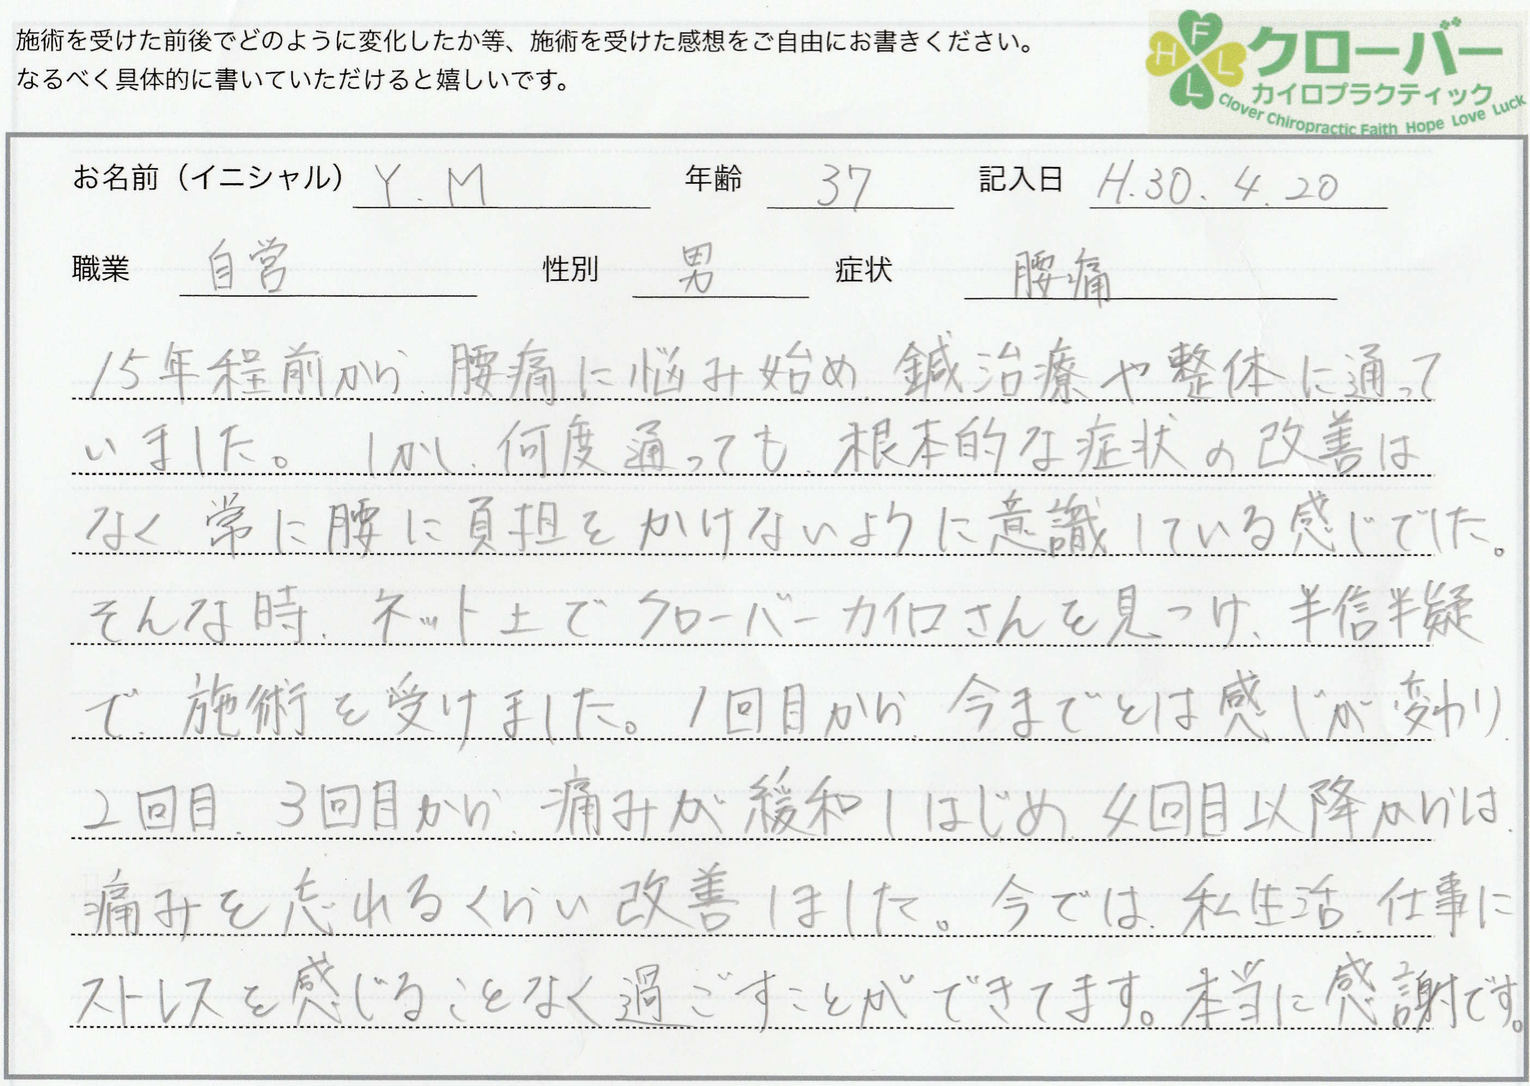 施術を受けた前後でどのように変化したか等、施術を受けた感想をご自由にお書きください。
なるべく具体的に書いていただけると嬉しいです。
F H L L
クローバー
カイロプラクティック
Clover Chiropractic Faith Hope Love Luck
お名前（イニシャル） Y.M 年齢 37 記入日 H.30.4.20
職業 自営 性別 男 症状 腰痛
15年程前から、腰痛に悩み始め、鍼治療や整体に通って
いました。しかし、何度通っても、根本的な症状の改善は
なく、常に腰に負担をかけないように意識している感じでした。
そんな時、ネット上でクローバーカイロさんを見つけ、半信半疑
で、施術を受けました。1回目から、今までとは感じが変わり、
2回目、3回目から、痛みが緩和しはじめ、4回目以降からは、
痛みを忘れるくらい改善しました。今では、私生活、仕事に
ストレスを感じることなく過ごすことができてます。本当に感謝です。